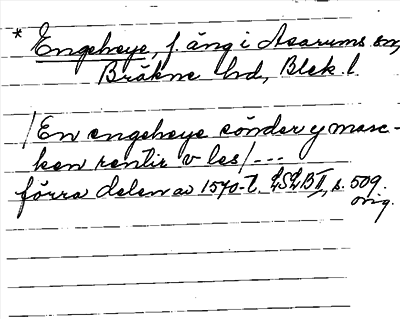 * Engehoye, f. äng i Asarums sn,
Bräkne hd, Blek. l.
/En engehoye sönder y mase-
ken rentir v les/ ---
förra delen av 1570-t. LSLB II, s. 509.
orig.